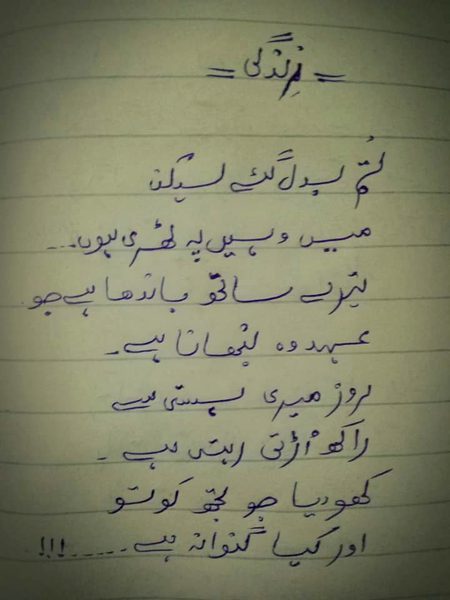 = زندگی =
تُم بدل گئے لیکن
میں وہیں پہ ٹھری ہوں...
تیرے ساتھ باندھا ہے جو
عہد وہ نبھانا ہے۔
روز میری ہستی سے
راکھ اُڑتی رہتی ہے۔
کھو دیا جو تجھ کو تو
اور کیا گنوانہ ہے.....!!!